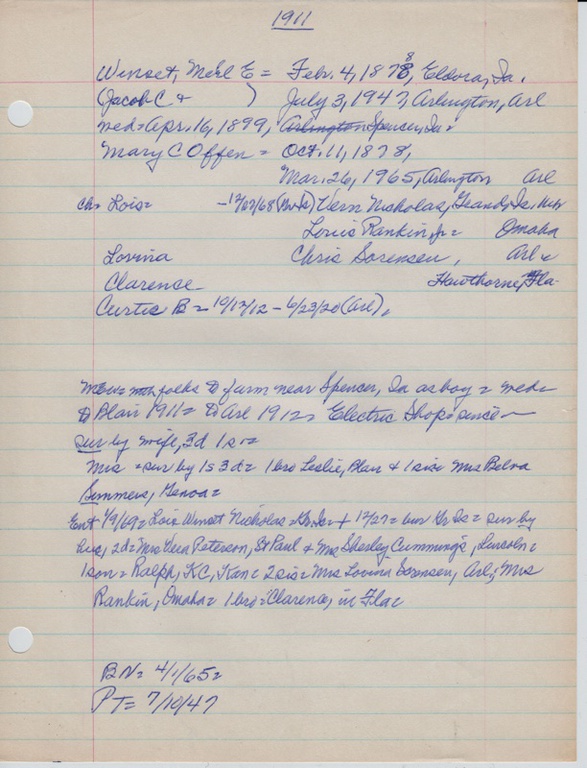 1911
Winset, Merl E = Feb. 4, 1878, Eldora, Ia.
(Jacob C & ) July 3, 1947, Arlington, Arl
med = Apr. 16, 1899, Arlington Spencer, Ia =
Mary C Offen = Oct. 11, 1878,
Mar. 26, 1965, Arlington Arl
ch = Lois = - 12/27/68 Vern Nicholas, Grand Is, Neb
Louis Rankin Jr = Omaha
Lovina Chris Sorensen, Arl =
Clarence Hawthorne, Fla
Curtis B = 10/12/12 - 6/23/20 (Arl),
folks to farm near Spencer, Ia as boy = med =
to Blair 1911 = to Arl 1912, Electric Shop since -
sur by wife, 3d 1s =
Mrs = sur by 1s 3d = 1 bro Leslie, Blair & 1 sis Mrs Belva
Simmers, Genoa =
Ent 1/9/69 = Lois Winset Nicholas = Gr Is = + 12/27 = bur Gr Is = sur by
hus, 2d = Mrs Vera Peterson, St Paul & Mrs Shirley Cummings, Lincoln =
1 son = Ralph, KC, Kan = 2 sis = Mrs Lovina Sorensen, Arl; Mrs
Rankin, Omaha = 1 bro = Clarence, in Fla =
BN = 4/1/65 =
PT = 7/10/47